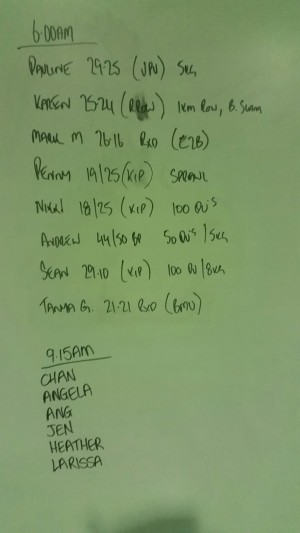 6:00AM
PAULINE 29:25 (JPU) 5KG
KAREN 25:24 (ROW) 1KM ROW, B. SLAM
MARK M 26:16 RXD
PENNY 19/25 (KIP) SPRAWL
NIKKI 18/25 (KIP) 100 DU'S
ANDREW 44/50 BP 50 DU'S / 5KG
SEAN 29:10 (KIP) 100 DU / 8KG
TANIA G. 21:21 RXD (BMU)
9.15AM
CHAN
ANGELA
ANG
JEN
HEATHER
LARISSA